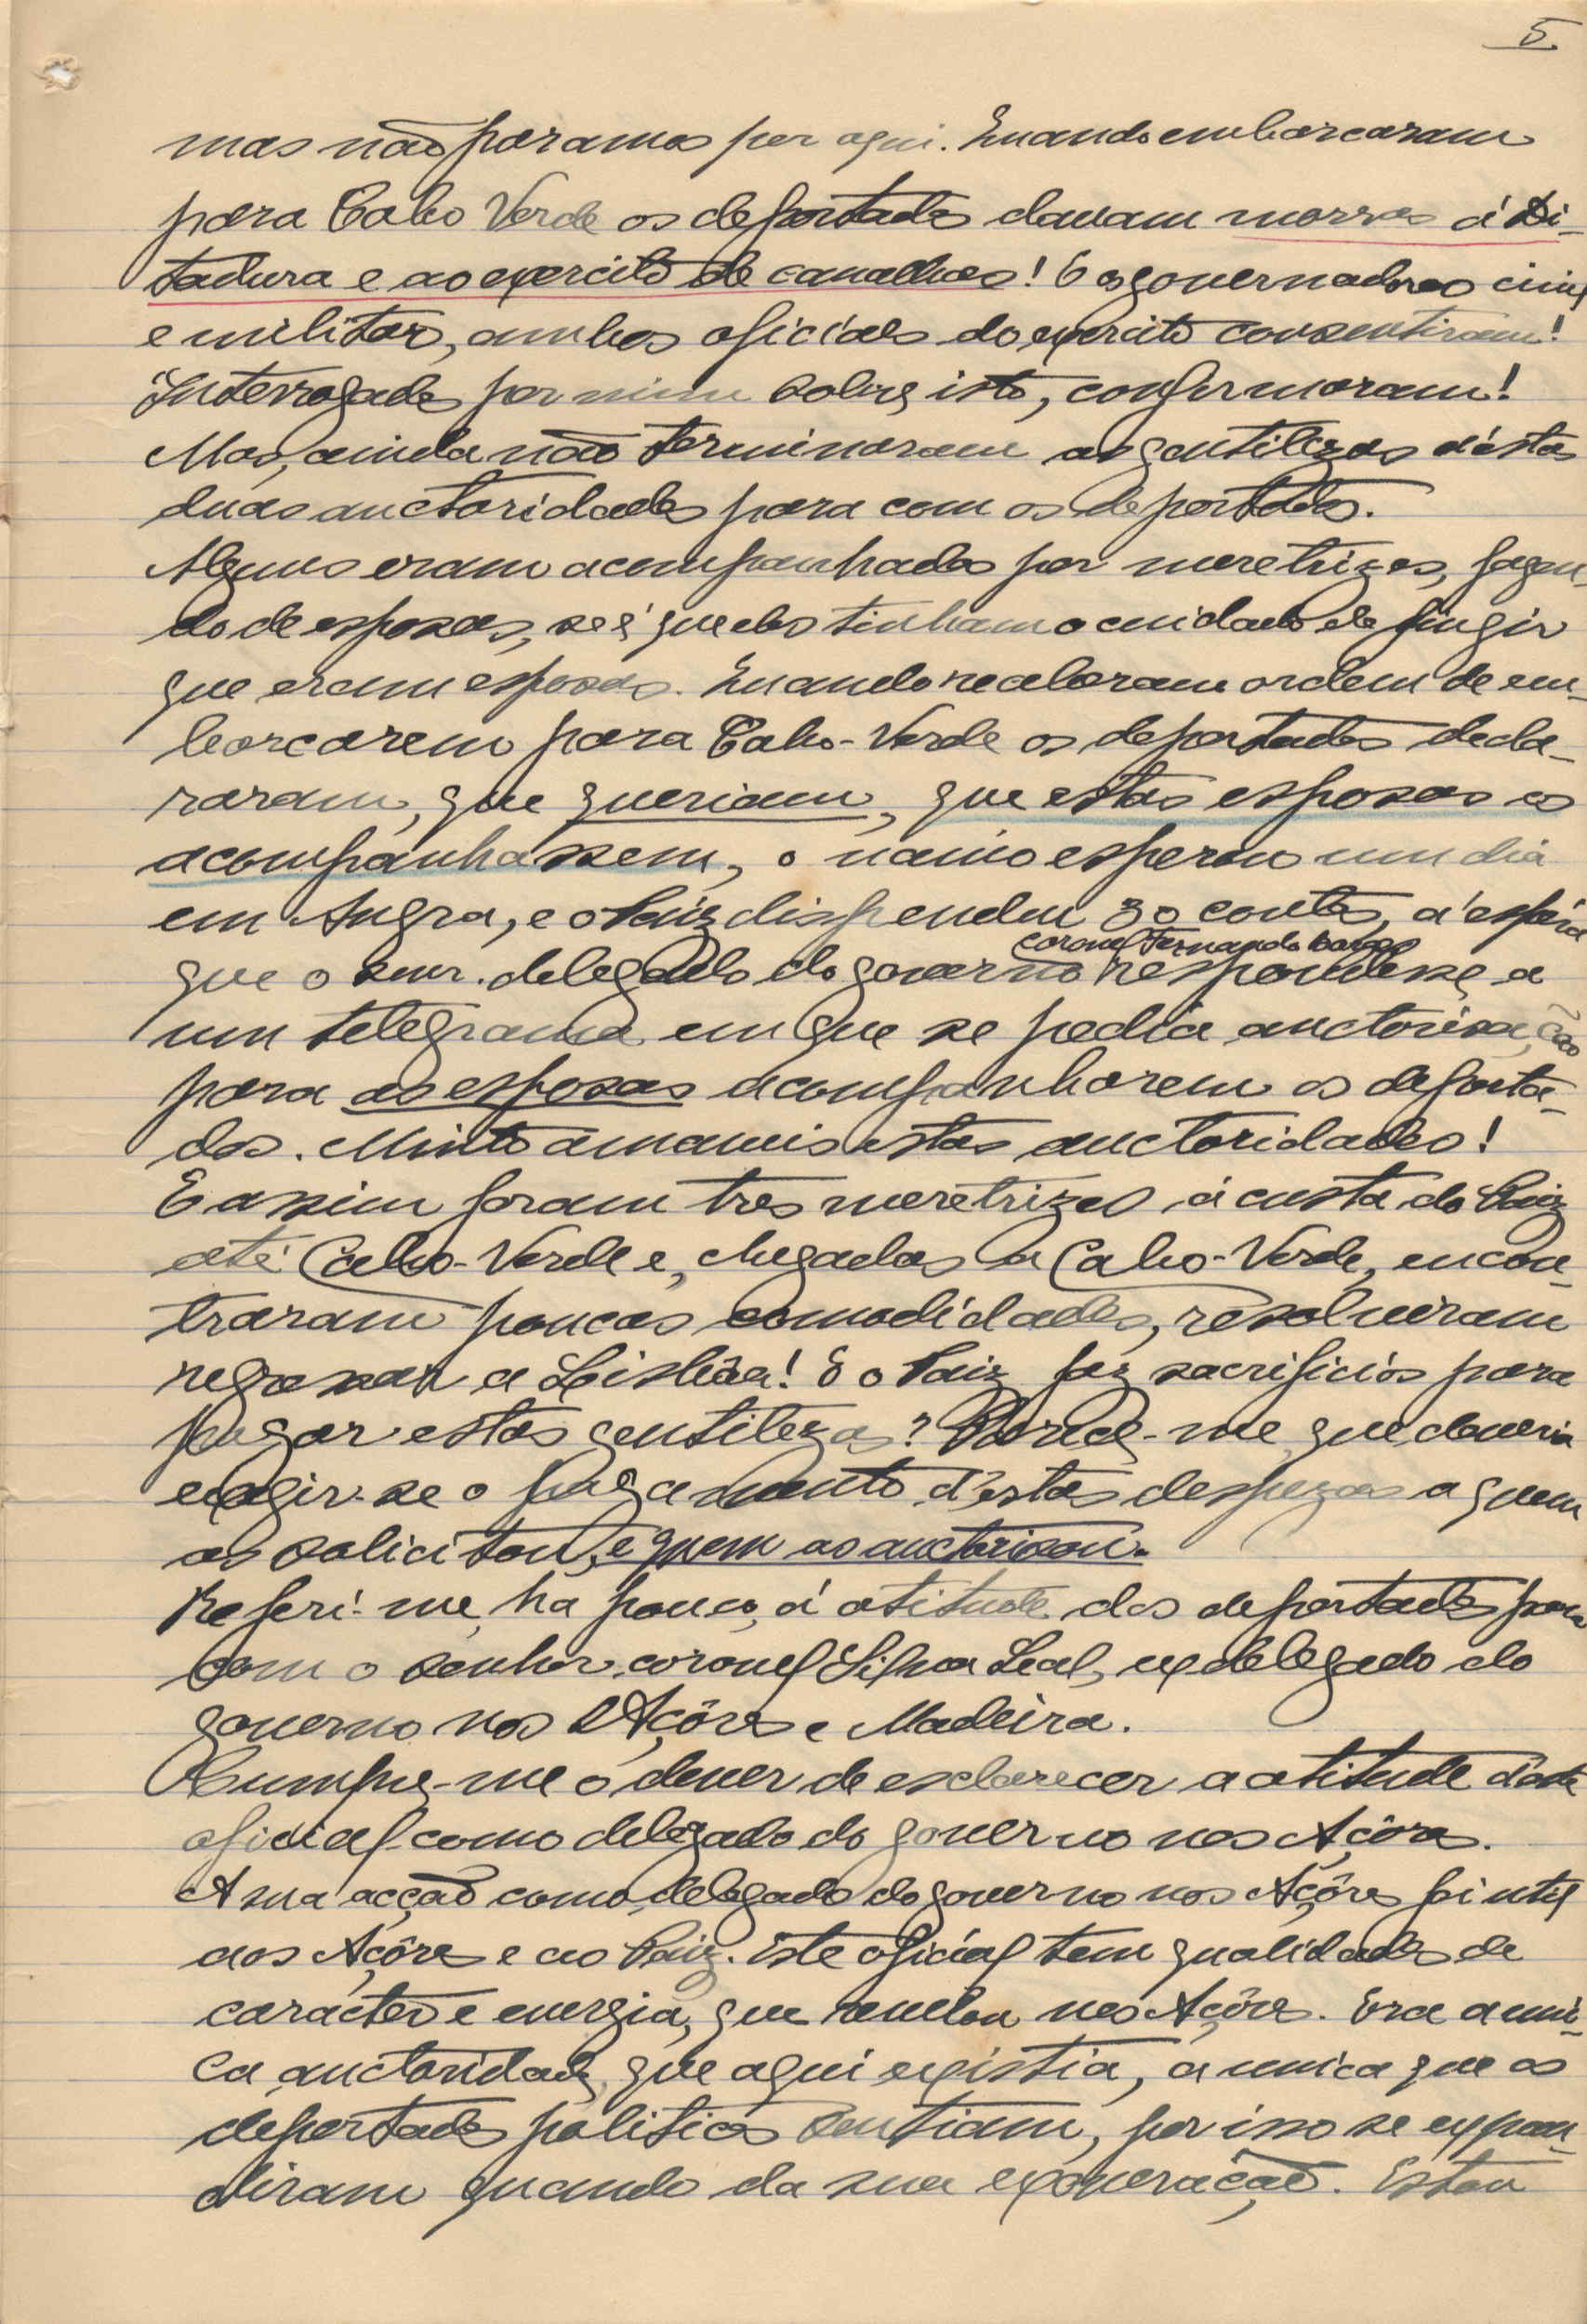 5.
mas não paramos por aqui. Quando embarcaram
para Cabo Verde os deportados davam morras á Di-
tadura e ao exercito de canalhas! E os governadores civil
e militar, ambos oficiaes do exercito consentiram!
Interrogados por mim sobre isto, confirmaram!
Mas, ainda não terminaram as gentilezas d'éstas
duas auctoridades para com os deportados.
Alguns eram acompanhados por meretrizes, fazen-
do de esposas, se é que eles tinham o cuidado de fingir
que eram esposas. Quando receberam ordem de em-
barcarem para Cabo-Verde os deportados decla-
raram, que queriam, que estas esposas os
acompanhassem, o navio esperou um dia
em Angra, e o Paiz dispendeu 30 contos, á espéra
coronel Fernando Borges
que o snr. delegado do governo respondesse a
um telegrama em que se pedia auctorisação
para as esposas acompanharem os deporta-
dos. Muito amaveis estas auctoridades!
E assim foram tres meretrizes á custa do Paiz
até Cabo-Verde e, chegadas a Cabo-Verde, encon-
traram poucas comodidades, resolveram
regressar a Lisbôa! E o Paiz faz sacrificios para
pagar estas gentilezas? Parece-me que deveria
exigir-se o pagamento d'estas despezas a quem
as solicitou, e quem as auctorisou.
Referi-me, ha pouco, á atitude dos deportados para
com o senhor coronel Silva Leal, ex delegado do
governo nos Açôres e Madeira.
Cumpre-me o dever de esclarecer a atitude d'este
oficial como delegado do governo nos Açôres.
A sua acção como delegado do governo nos Açôres foi util
aos Açôres e ao Paiz. Este oficial tem qualidades de
caracter e energia, que revelou nos Açôres. Era a uni-
ca auctoridade que aqui existia, a unica que os
deportados politicos sentiam, por isso se expan-
diram quando da sua exoneração. Estou